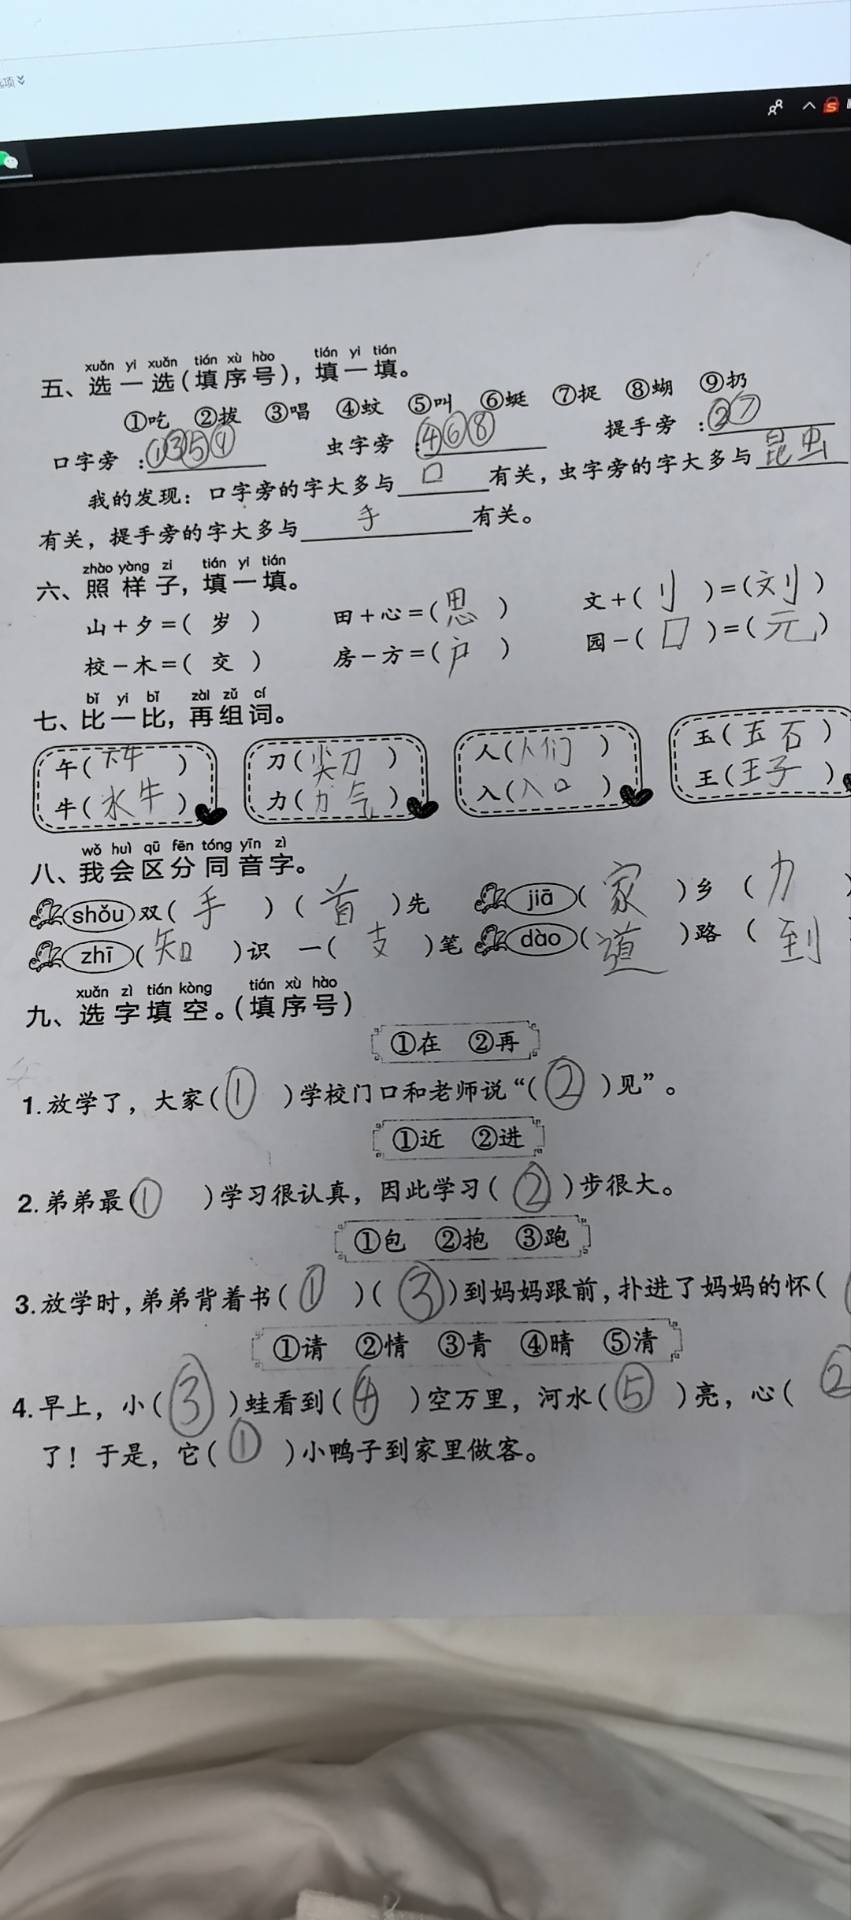 xuǎn yi xuǎn tián xù hào tián yi tián
五、选一选(填序号)，填一填。
①吃 ②拔 ③唱 ④蚊 ⑤叫 ⑥蜓 ⑦捉 ⑧蝴 ⑨扔
口字旁：①③⑤ 虫字旁：④⑥⑧ 提手旁：②⑦
我的发现：口字旁的字大多与口有关，虫字旁的字大多与昆虫
有关，提手旁的字大多与手有关。
zhào yàng zi tián yi tián
六、照样子，填一填。
山+夕=(岁) 田+心=(思) 文+(刂)=(刘)
校-木=(交) 房-方=(户) 园-(口)=(元)
bǐ yi bǐ zài zǔ cí
七、比一比，再组词。
午(下午) 刀(尖刀) 人(人们) 玉(玉石)
牛(水牛) 力(力气) 入(入口) 王(王子)
wǒ huì qū fēn tóng yīn zì
八、我会区分同音字。
shǒu 双(手) (首)先 jiā (家)乡 (力
zhī (知)识 一(支)笔 dào (道)路 (到
xuǎn zì tián kòng tián xù hào
九、选字填空。(填序号)
①在 ②再
1.放学了，大家(①)学校门口和老师说“(②)见”。
①近 ②进
2.弟弟最(①)学习很认真，因此学习(②)步很大。
①包 ②抱 ③跑
3.放学时，弟弟背着书(①)(③)到妈妈跟前，扑进了妈妈的怀(
①请 ②情 ③青 ④晴 ⑤清
4.早上，小(③)蛙看到(④)空万里，河水(⑤)亮，心(②
了！于是，它(①)小鸭子到家里做客。